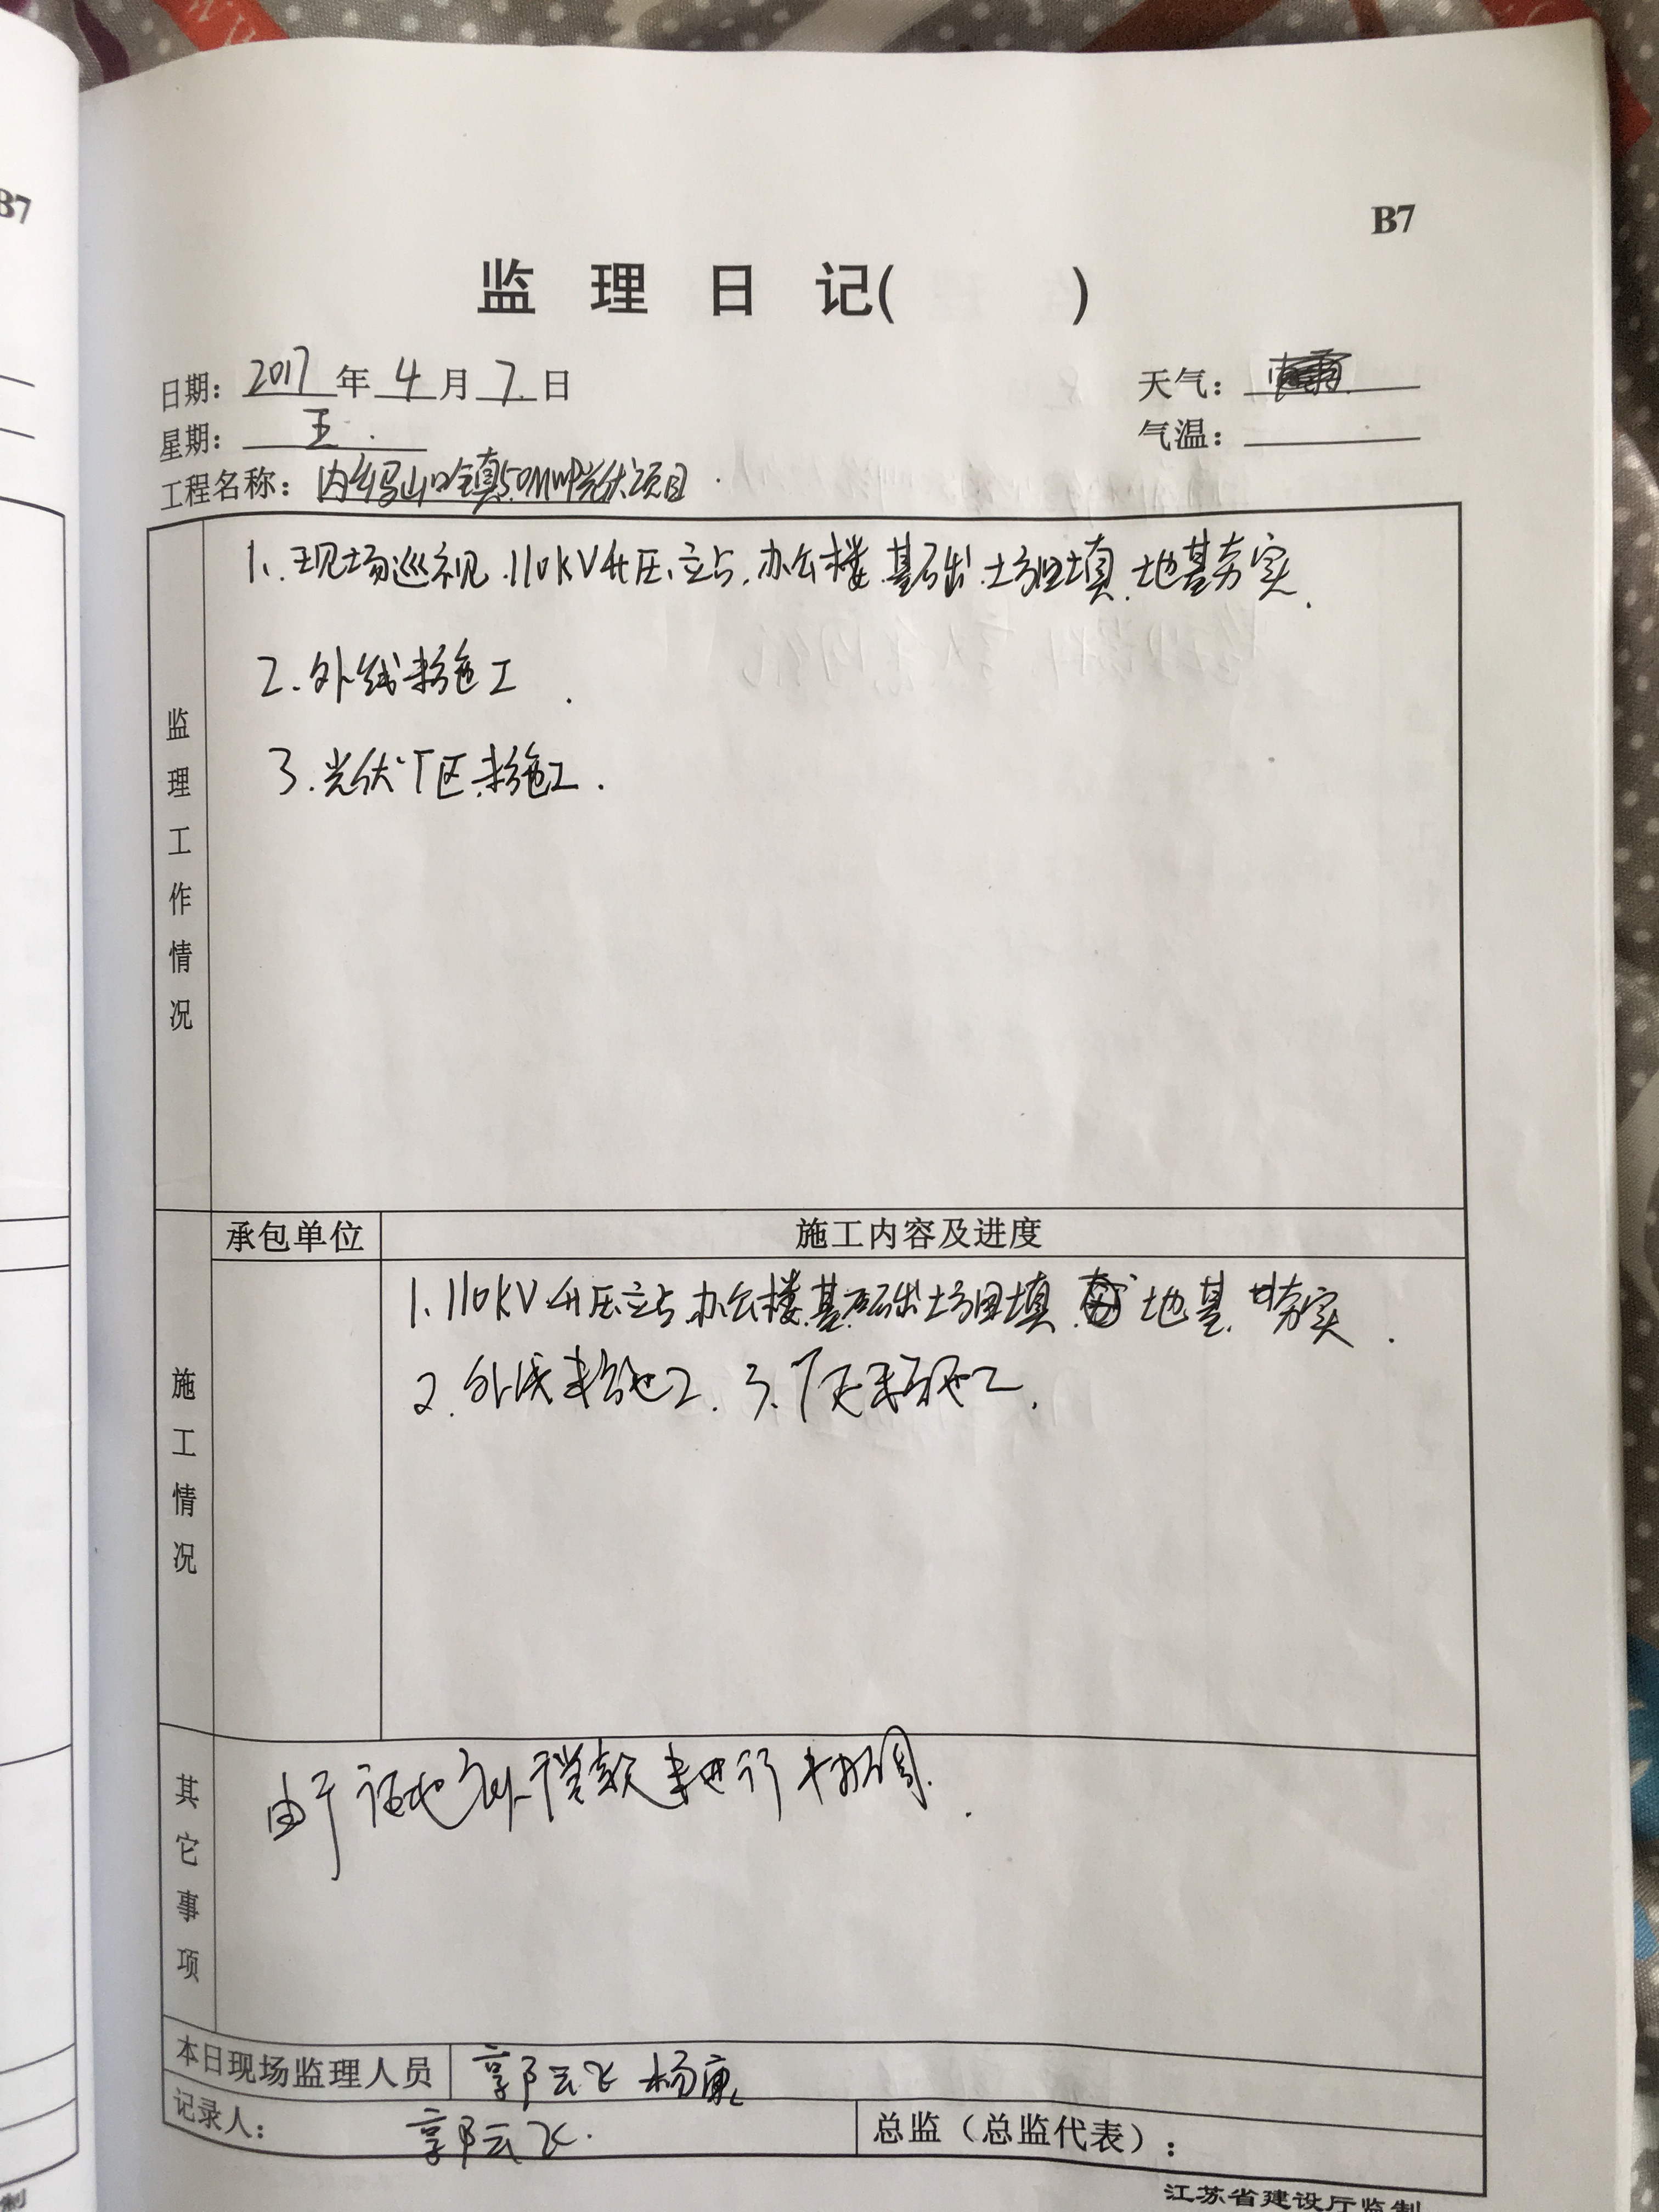 B7
B7
监理日记( )
日期: 2017 年 4 月 7 日
天气:
星期: 五.
气温:
工程名称: 内乡马山口镇50MWP光伏项目.
监理工作情况
1、现场巡视.110KV升压站.办公楼.基础.土方回填.地基夯实.
2.外线未施工.
3.光伏厂区未施工.
承包单位
施工内容及进度
施工情况
1、110KV升压站.办公楼.基础土方回填.地基.夯实.
2.外线未施工. 3.厂区未施工.
其它事项
由于 款未进行协调.
本日现场监理人员 郭云飞 杨康
记录人: 郭云飞.
总监（总监代表）:
江苏省建设厅监制
制